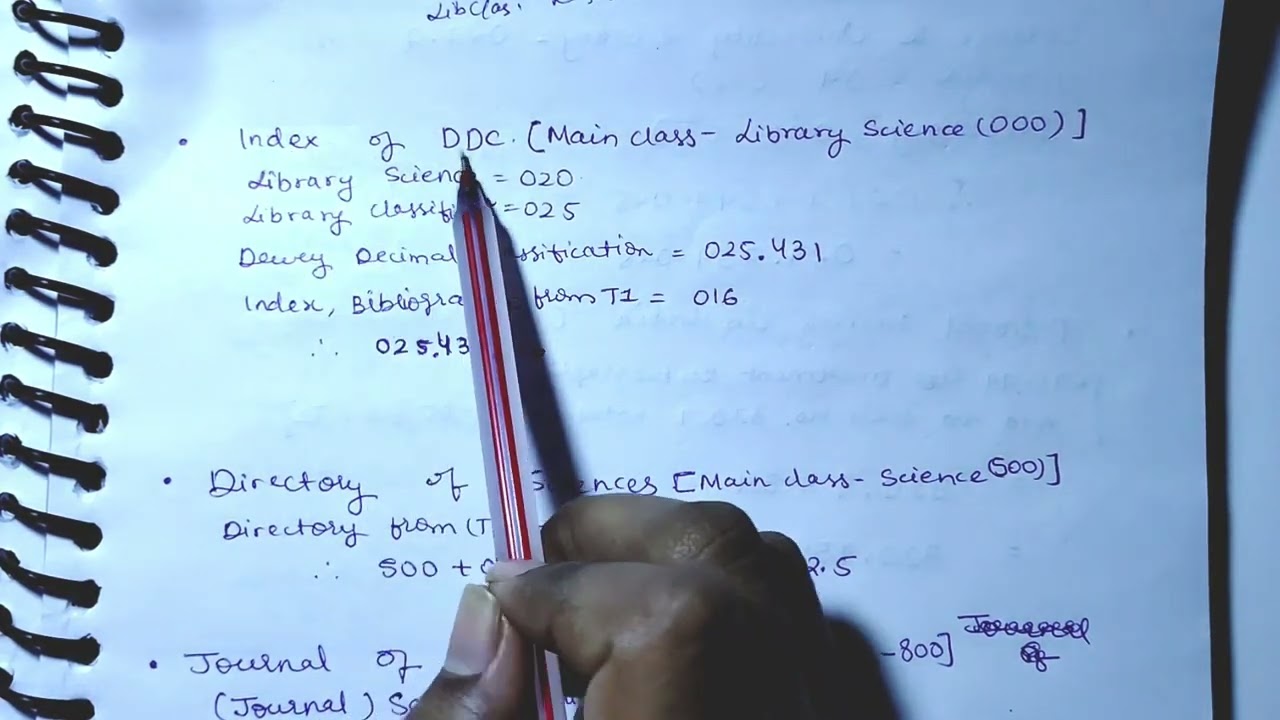 LibClas.
• Index of DDC. [Main class- Library Science (000)]
Library Scienc = 020
Library classifi = 025
Dewey Decimal ssification = 025.431
Index, Bibliogra from T1 = 016
∴ 025.43
• Directory of Sciences [Main class- Science (500)]
Directory from (T
∴ 500 + 2.5
• Journal of -800]
(Journal)